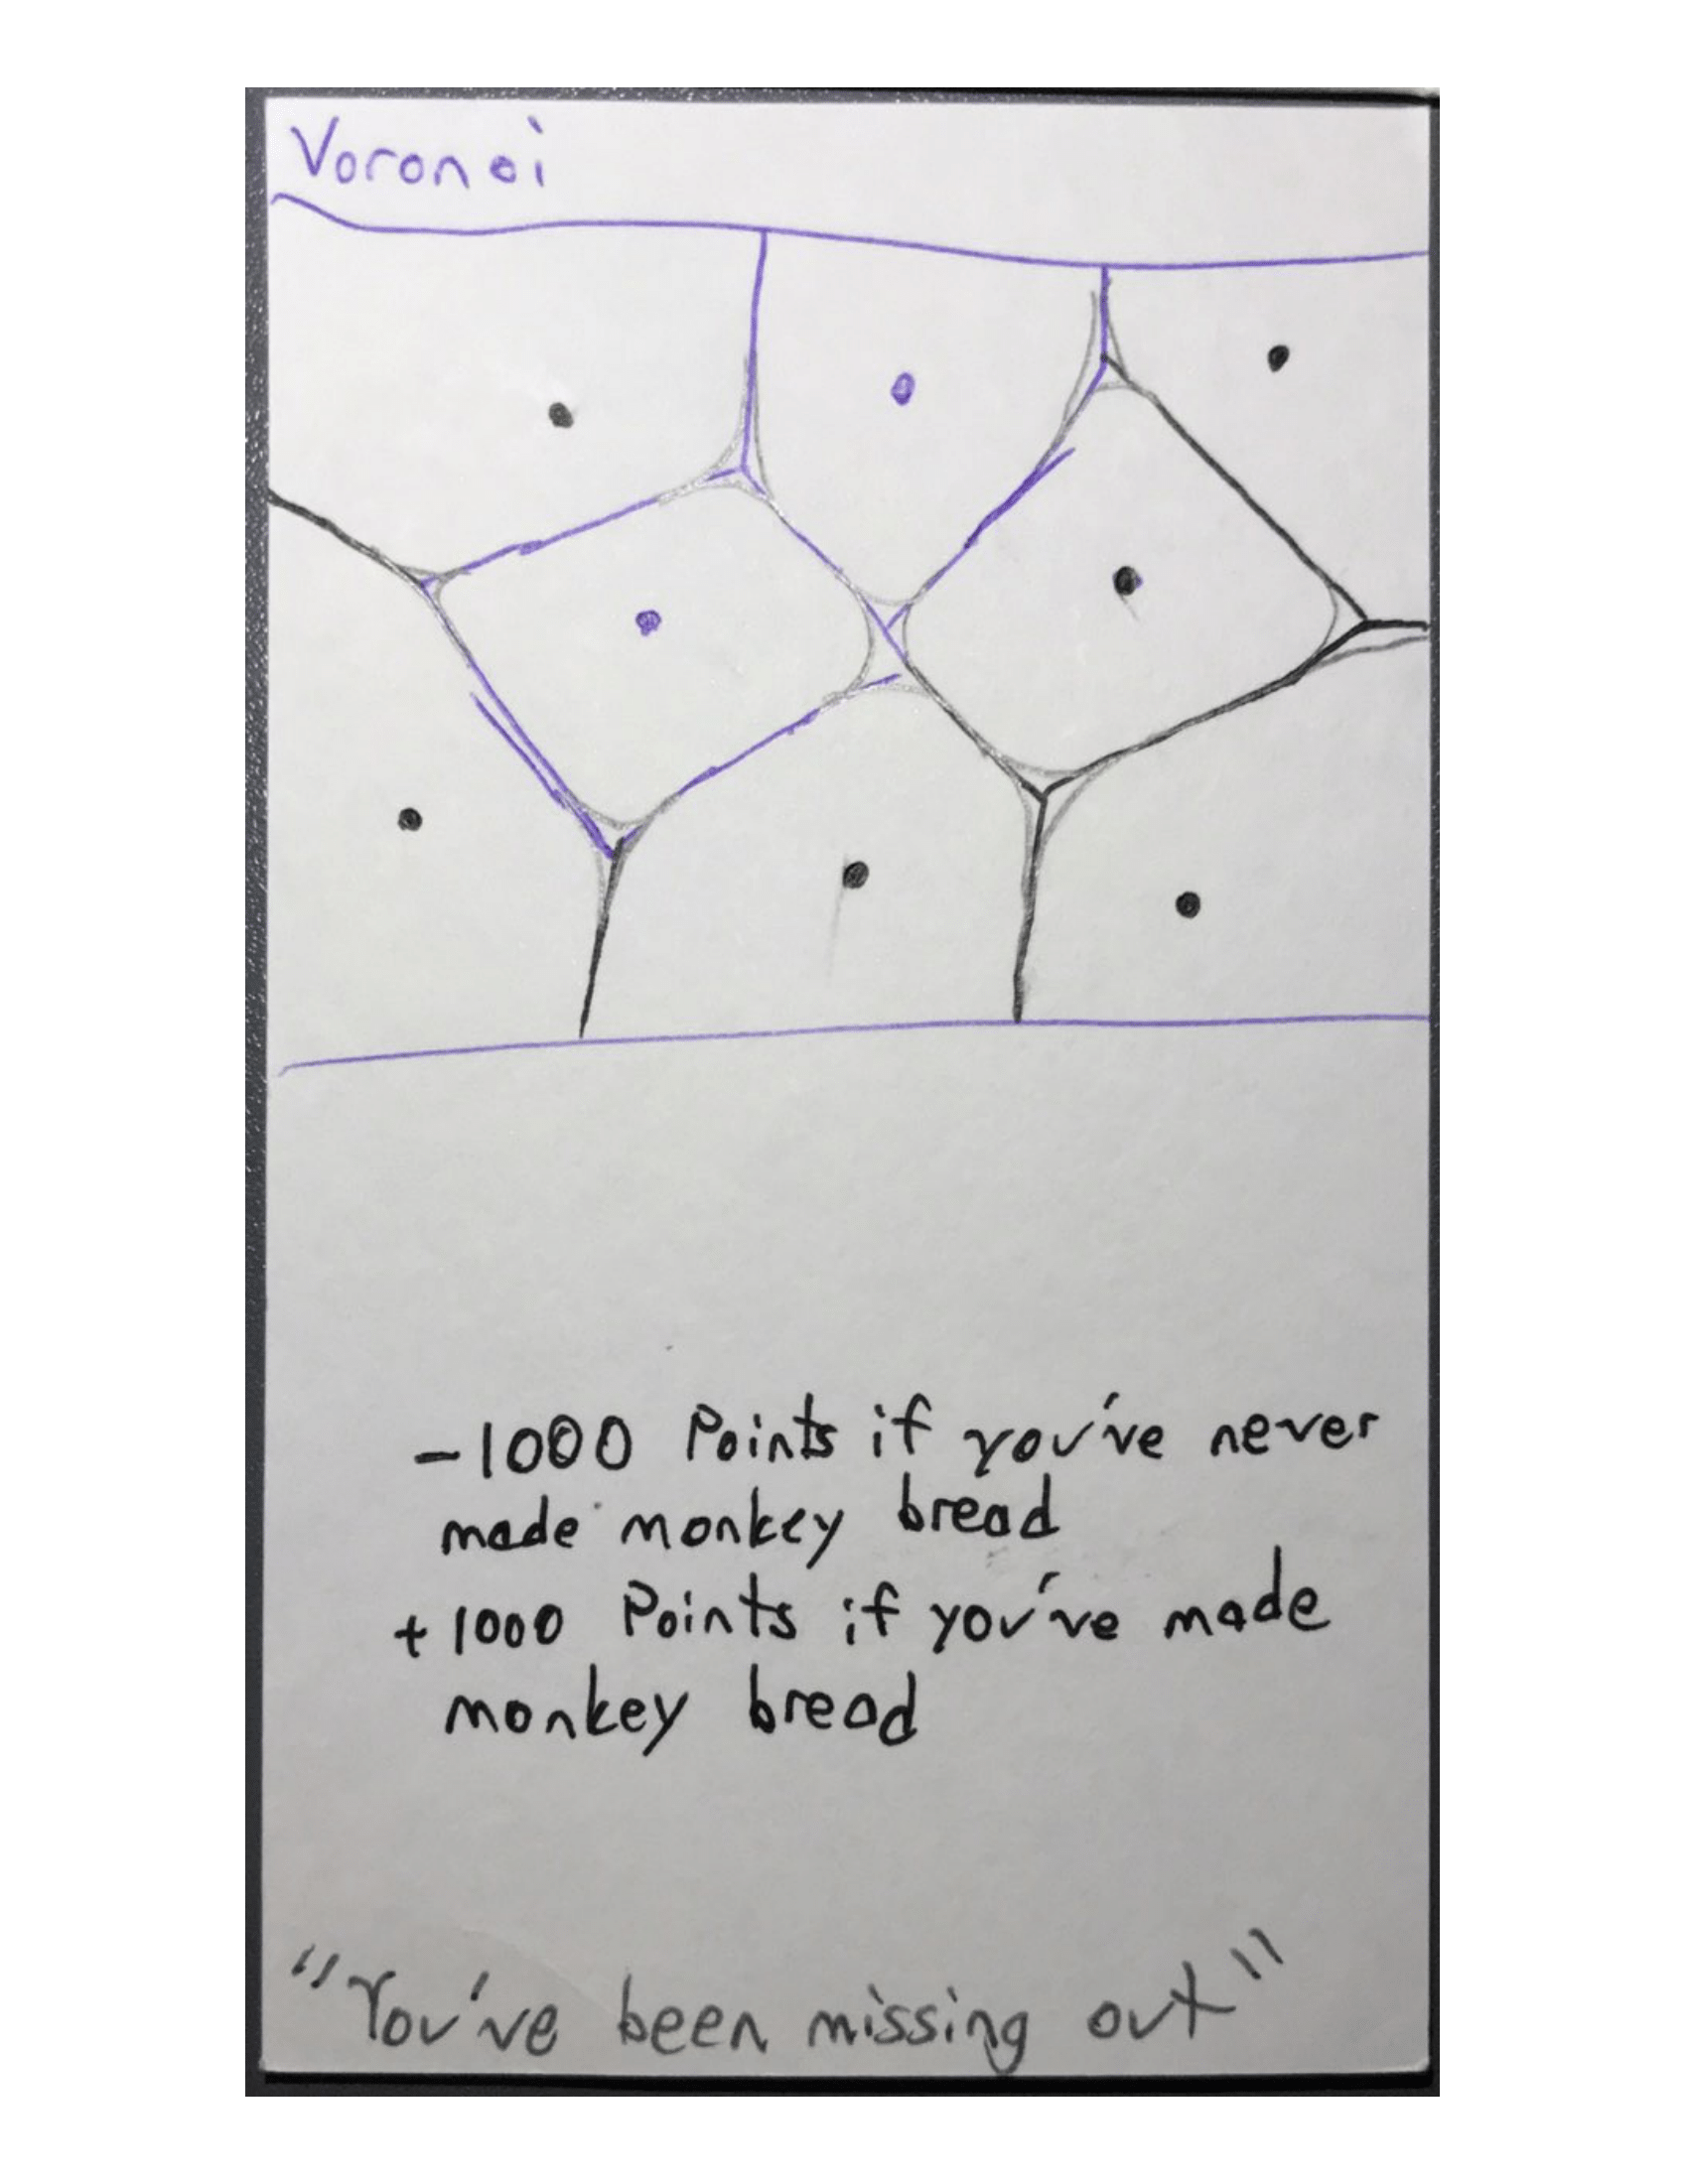 Voronoi
-1000 Points if you've never
made monkey bread
+1000 Points if you've made
monkey bread
"You've been missing out"